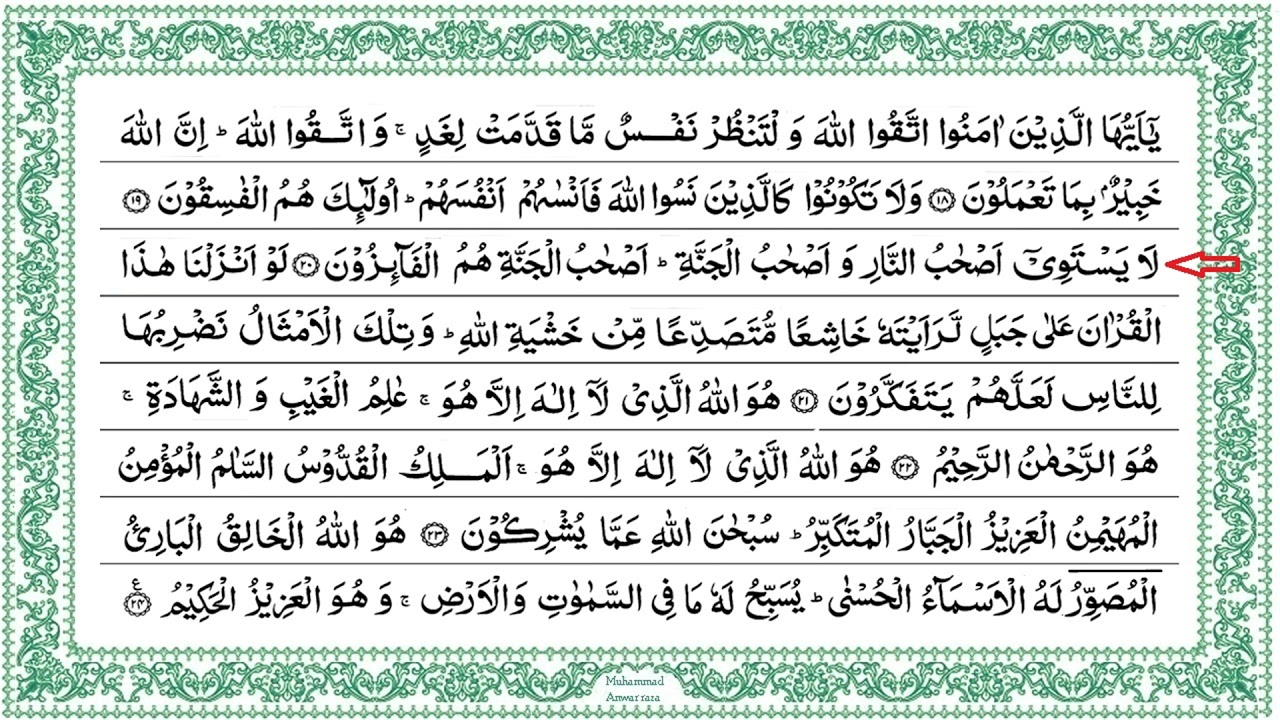 یٰۤاَیُّهَا الَّذِیْنَ اٰمَنُوا اتَّقُوا اللّٰهَ وَ لْتَنْظُرْ نَفْسٌ مَّا قَدَّمَتْ لِغَدٍۚ وَ اتَّقُوا اللّٰهَؕ اِنَّ اللّٰهَ
خَبِیْرٌۢ بِمَا تَعْمَلُوْنَ ۱۸ وَلَا تَكُوْنُوْا كَالَّذِیْنَ نَسُوا اللّٰهَ فَاَنْسٰىهُمْ اَنْفُسَهُمْؕ اُولٰٓىِٕكَ هُمُ الْفٰسِقُوْنَ ۱۹
لَا یَسْتَوِیْۤ اَصْحٰبُ النَّارِ وَ اَصْحٰبُ الْجَنَّةِؕ اَصْحٰبُ الْجَنَّةِ هُمُ الْفَآىِٕزُوْنَ ۲۰ لَوْ اَنْزَلْنَا هٰذَا
الْقُرْاٰنَ عَلٰى جَبَلٍ لَّرَاَیْتَهٗ خَاشِعًا مُّتَصَدِّعًا مِّنْ خَشْیَةِ اللّٰهِؕ وَتِلْكَ الْاَمْثَالُ نَضْرِبُهَا
لِلنَّاسِ لَعَلَّهُمْ یَتَفَكَّرُوْنَ ۲۱ هُوَ اللّٰهُ الَّذِیْ لَاۤ اِلٰهَ اِلَّا هُوَۚ عٰلِمُ الْغَیْبِ وَ الشَّهَادَةِۚ
هُوَ الرَّحْمٰنُ الرَّحِیْمُ ۲۲ هُوَ اللّٰهُ الَّذِیْ لَاۤ اِلٰهَ اِلَّا هُوَۚ اَلْمَلِكُ الْقُدُّوْسُ السَّلٰمُ الْمُؤْمِنُ
الْمُهَیْمِنُ الْعَزِیْزُ الْجَبَّارُ الْمُتَكَبِّرُؕ سُبْحٰنَ اللّٰهِ عَمَّا یُشْرِكُوْنَ ۲۳ هُوَ اللّٰهُ الْخَالِقُ الْبَارِئُ
الْمُصَوِّرُ لَهُ الْاَسْمَآءُ الْحُسْنٰىؕ یُسَبِّحُ لَهٗ مَا فِی السَّمٰوٰتِ وَالْاَرْضِۚ وَ هُوَ الْعَزِیْزُ الْحَكِیْمُ ۲۴ ع
Muhammad
Anwar raza